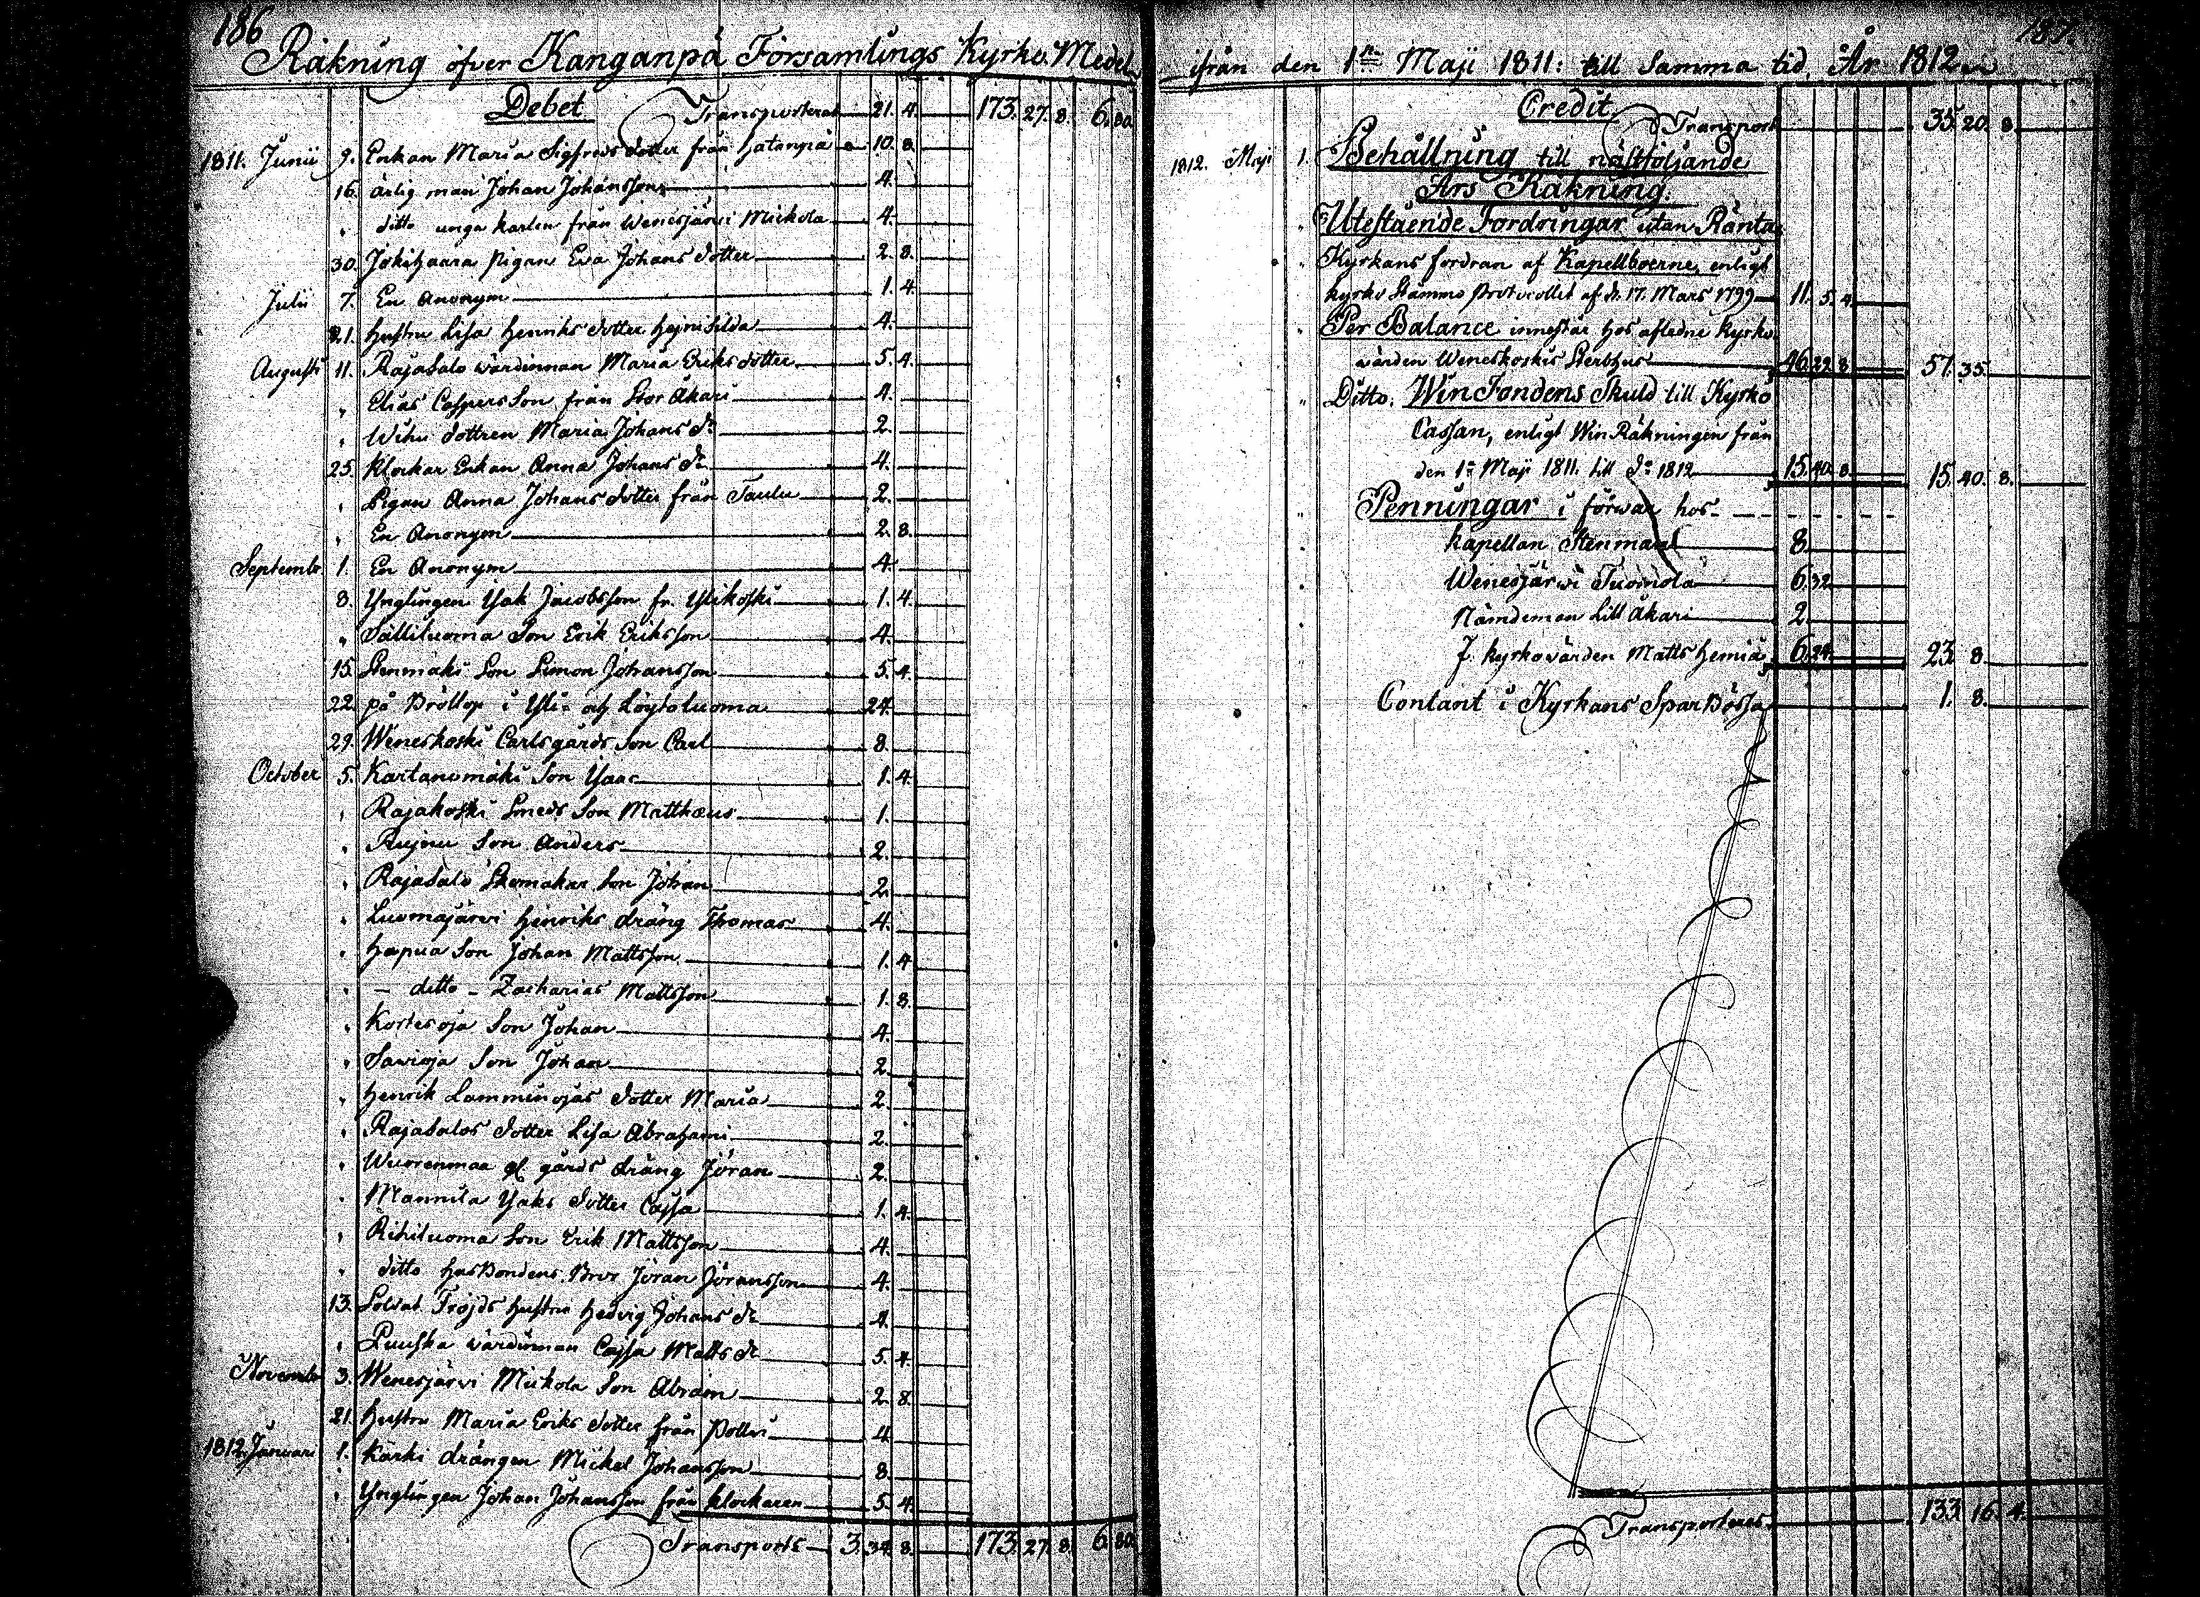 186
Räkning öfver Kanganpä Församlings Kyrko Medel
Debet Transporterat 21. 4. 173. 27. 8. 6. 80.
1811. Junii 9. Enkan Maria Sigfreds dotter från Hatanpiä 10. 8.
16. ärlig man Johan Johansson 4.
" ditto unga karlen från Wenesjärvi Mickola 4.
30. Jokihaara pigan Eva Johans dotter 2. 8.
Julii 7. En Anonym 1. 4.
21. Hustru Lisa Henriks dotter Hejniluda 4.
Augusti 11. RajaSalo wärdinnan Maria Eriks dotter 5. 4.
" Elias CaspersSon från Stor Åkari 4.
" Wihu dottren Maria Johans dr 2.
25. Klockar Enkan Anna Johans dr 4.
" Pigan Anna Johans dotter från Taulu 2.
" En Anonym 2. 8.
Septembr 1. En Anonym 4.
8. Ynglingen Isak Jacobsson fr. Ylikoski 1. 4.
" Sälliluoma Son Erik Eriksson 4.
15. Stenmäki Son Simon Johansson 5. 4.
22. på Bröllop i Yli- och Löytöluoma 24.
29. Weneskoski Carlsgårds Son Carl 8.
October 5. Kartanomäki Son Isaac 1. 4.
" Rajakoski Smeds Son Matthæus 1.
" Rujnu Son Anders 2.
" RajaSalo Skomakar Son Johan 2.
" Luomajärvi Henriks dräng Thomas 4.
" Hapua Son Johan Mattsson 1. 4
" - ditto - Zacharias Mattsson 1. 8.
" Kortesoja Son Johan 4.
" Savioja Son Johan 2.
" Henrik Lamminojas dotter Maria 2.
" RajaSalos dotter Lisa Abrahami 2.
" Wuorenmaa gl. gårds dräng Jöran 2.
" Mannila Isaks dotter Cajsa 1. 4.
" Rihiluoma Son Erik Mattsson 4.
" ditto husBondens Bror Jöran Göransson 4.
13. Soldat Fröjds hustru Hedvig Johans dr 4.
" Puuska wärdinnan Cajsa Matts dr 5. 4.
Novembr 3. Wenesjärvi Mickola Son Abram 2. 8.
21. Hustru Maria Eriks dotter från Pottu 4
1812. Januari 1. Kärki drängen Mickel Johansson 8
" Ynglingen Johan Johansson från klockaren 5. 4.
Transports 3. 34. 8. 173. 27. 8. 6. 80.
187.
ifrån den 1n Maji 1811: till Samma tid, År 1812
Credit
Transport 35. 20. 8.
1812. Maji 1. Behållning till nästföljande
Års Räkning.
" Utestående Fordringar utan Ränta
" Kyrkans fordran af Kapellboerne, enligt
kyrko Stämmo Protocollet af d. 17. Mars 1799 11. 5. 4.
" Per Balance innestår hos afledne kyrko
wärden Weneskoskis Sterbhus 46. 29. 8. 57. 35.
" Ditto. WinFondens Skuld till Kyrko
Cassan, enligt Win Räkningen från
den 1n Maji 1811. till do 1812 15. 40. 8. 15. 40. 8.
" Penningar i förwar hos
kapellan Stenmaal 8.
Wenesjärwi Tuomola 6. 32
Nämdeman Lill Åkari 2.
f. kyrkowärden Matts Hemiä 6. 24. 23. 8.
Contant i Kyrkans SparBössa 1. 8.
Transporteres 133. 16. 4.